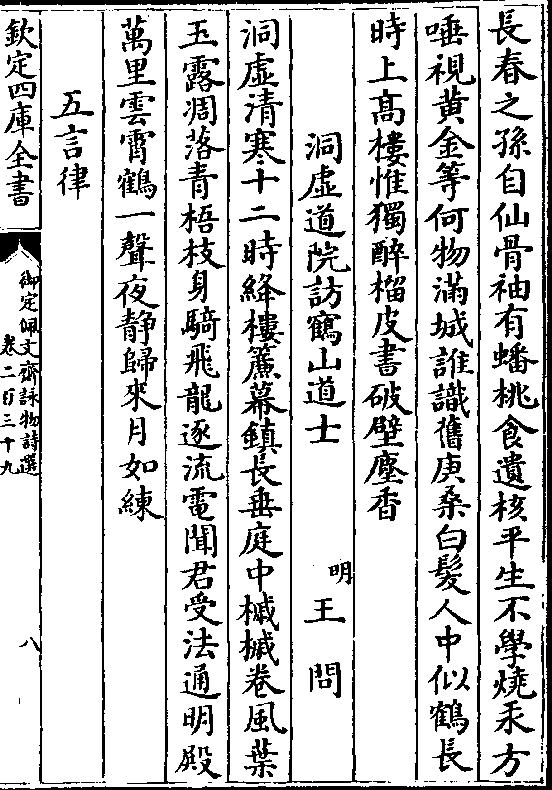 長春之孫自仙骨袖有蟠桃食遺核平生不學燒汞方
唾視黄金等何物滿城誰識舊庚桑白髮人中似鶴長
時上髙樓惟獨醉榴皮書破壁塵香
洞虛道院訪鶴山道士　明王問
洞虛清寒十二時絳樓簾幕鎮長垂庭中槭槭卷風葉
玉露凋落青梧枝身騎飛龍逐流電聞君受法通明殿
萬里雲霄鶴一聲夜静歸來月如練
五言律
欽定四庫全書
御定佩文齋詠物詩選
卷二百三十九
八